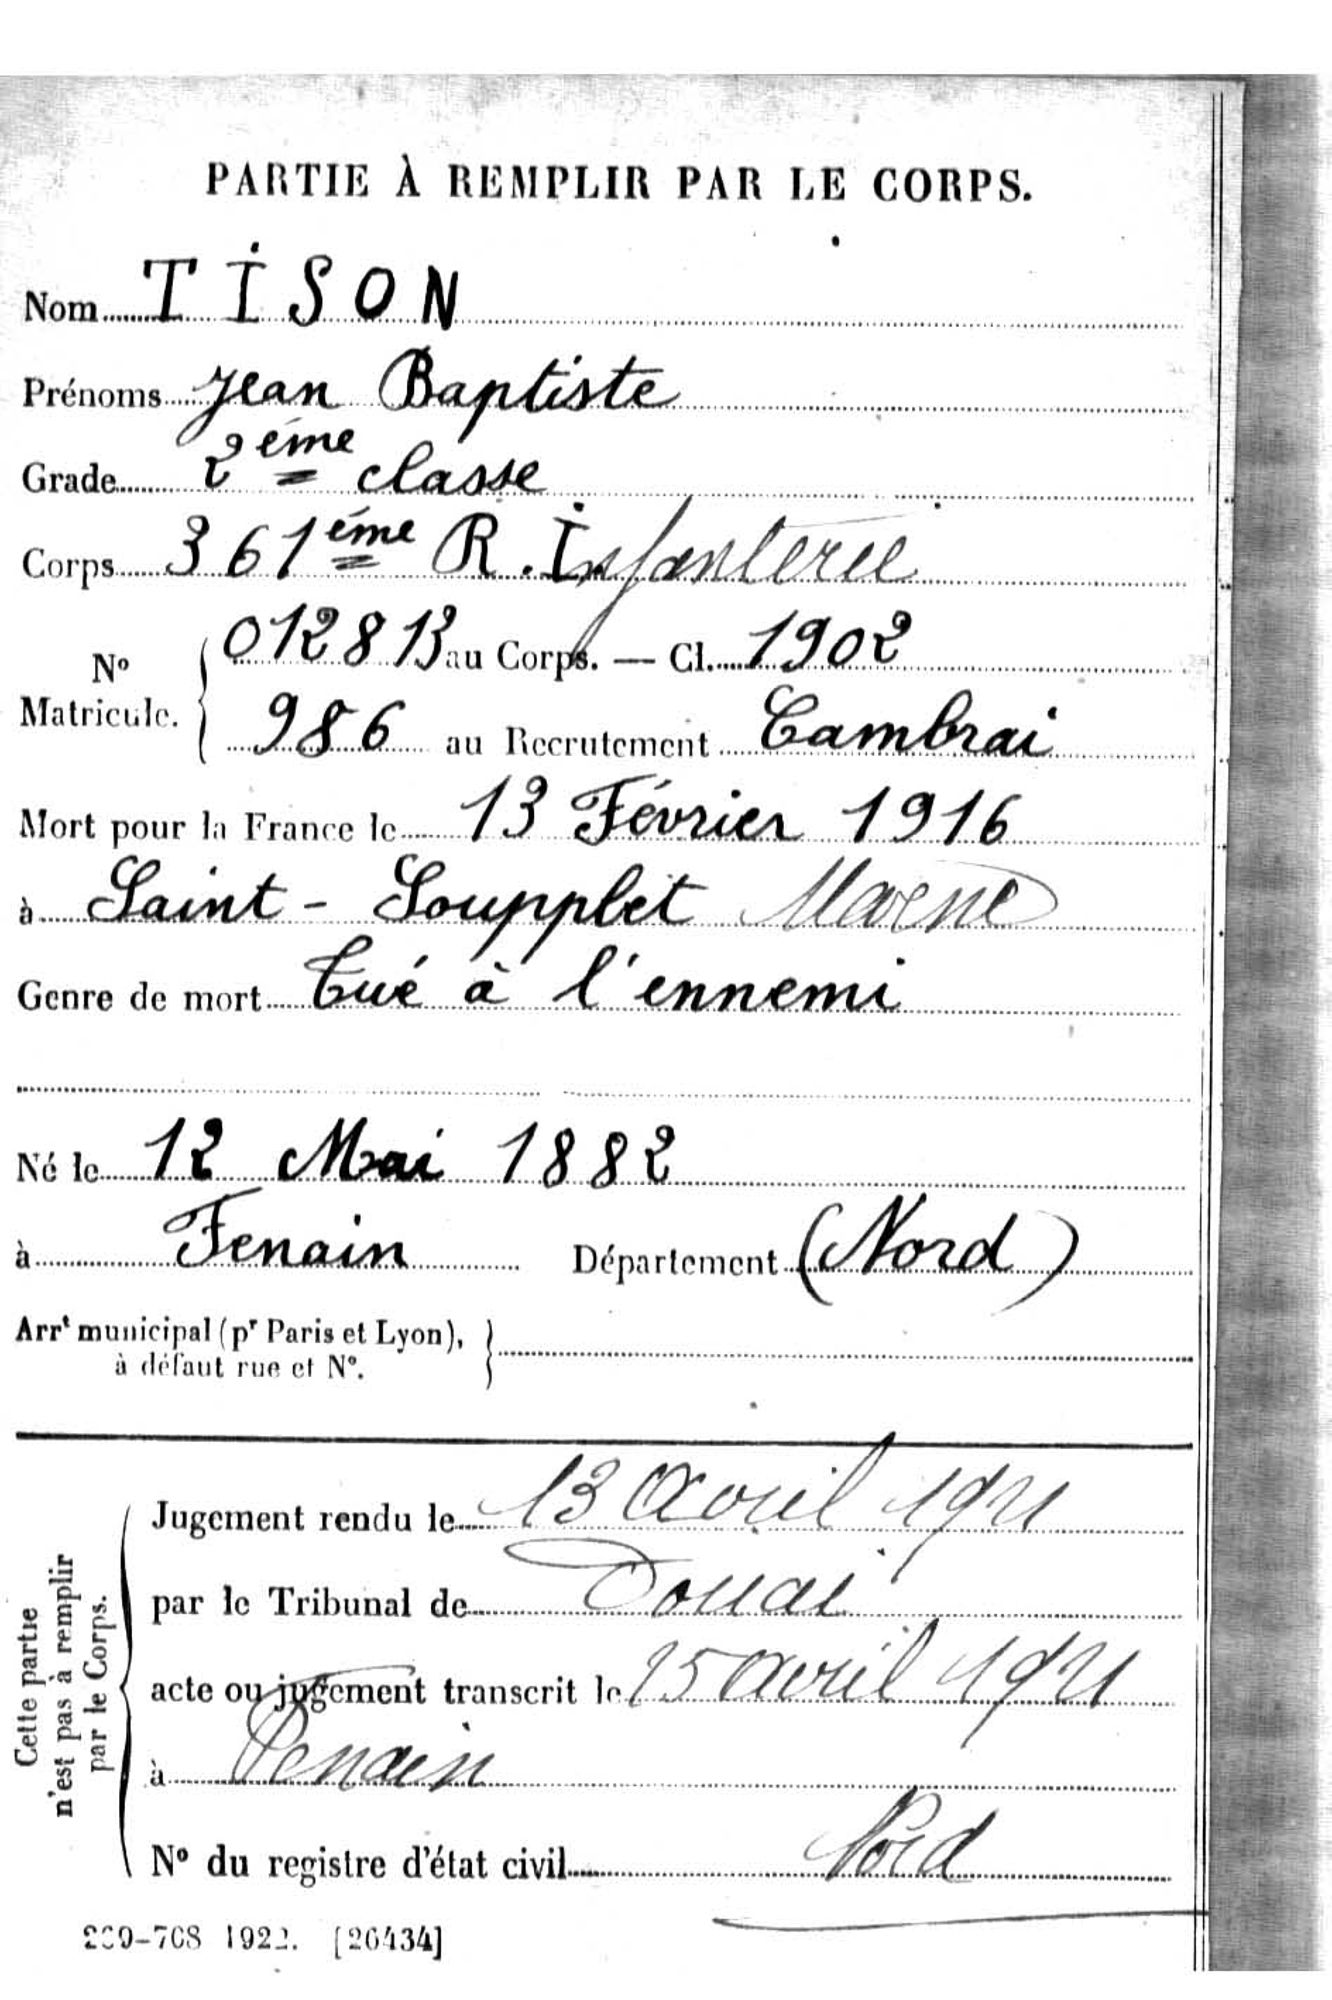 PARTIE À REMPLIR PAR LE CORPS.
Nom TISON
Prénoms Jean Baptiste
Grade 2ème classe
Corps 361ème R. Infanterie
No Matricule. { 012813 au Corps. — Cl. 1902
986 au Recrutement Cambrai
Mort pour la France le 13 Février 1916
à Saint-Soupplet Marne
Genre de mort Tué à l'ennemi
Né le 12 Mai 1882
à Fenain Département (Nord)
Arrt municipal (pr Paris et Lyon), }
à défaut rue et No.
Cette partie
n'est pas à remplir
par le Corps.
Jugement rendu le 13 Avril 1921
par le Tribunal de Douai
acte ou jugement transcrit le 25 avril 1921
à Fenain
No du registre d'état civil Nord
1922. [26434]